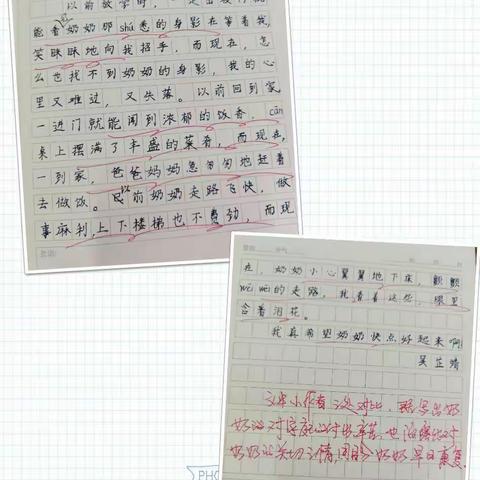 以前放学时，一走出校门就
能看奶奶那shú悉的身影在等着我，
笑眯眯地向我招手，而现在，怎
么也找不到奶奶的身影，我的心
里又难过，又失落。以前回到家，
一进门就能闻到浓郁的饭香，cān
桌上摆满了丰盛的菜肴，而现在，
一到家，爸爸妈妈急匆匆地赶着
去做饭。以前奶奶走路飞快，做
事麻利，上下楼梯也不费劲，而现
在，奶奶小心翼翼地下床，颤颤
wēi wēi的走路，我看着这些，眼里
含着泪花。
我真希望奶奶快点好起来啊！
吴芷晴
文中小作者三处对比，既写出奶
奶对家庭的付出辛苦，也
奶奶的关切之情，奶奶早日康复。
PHO